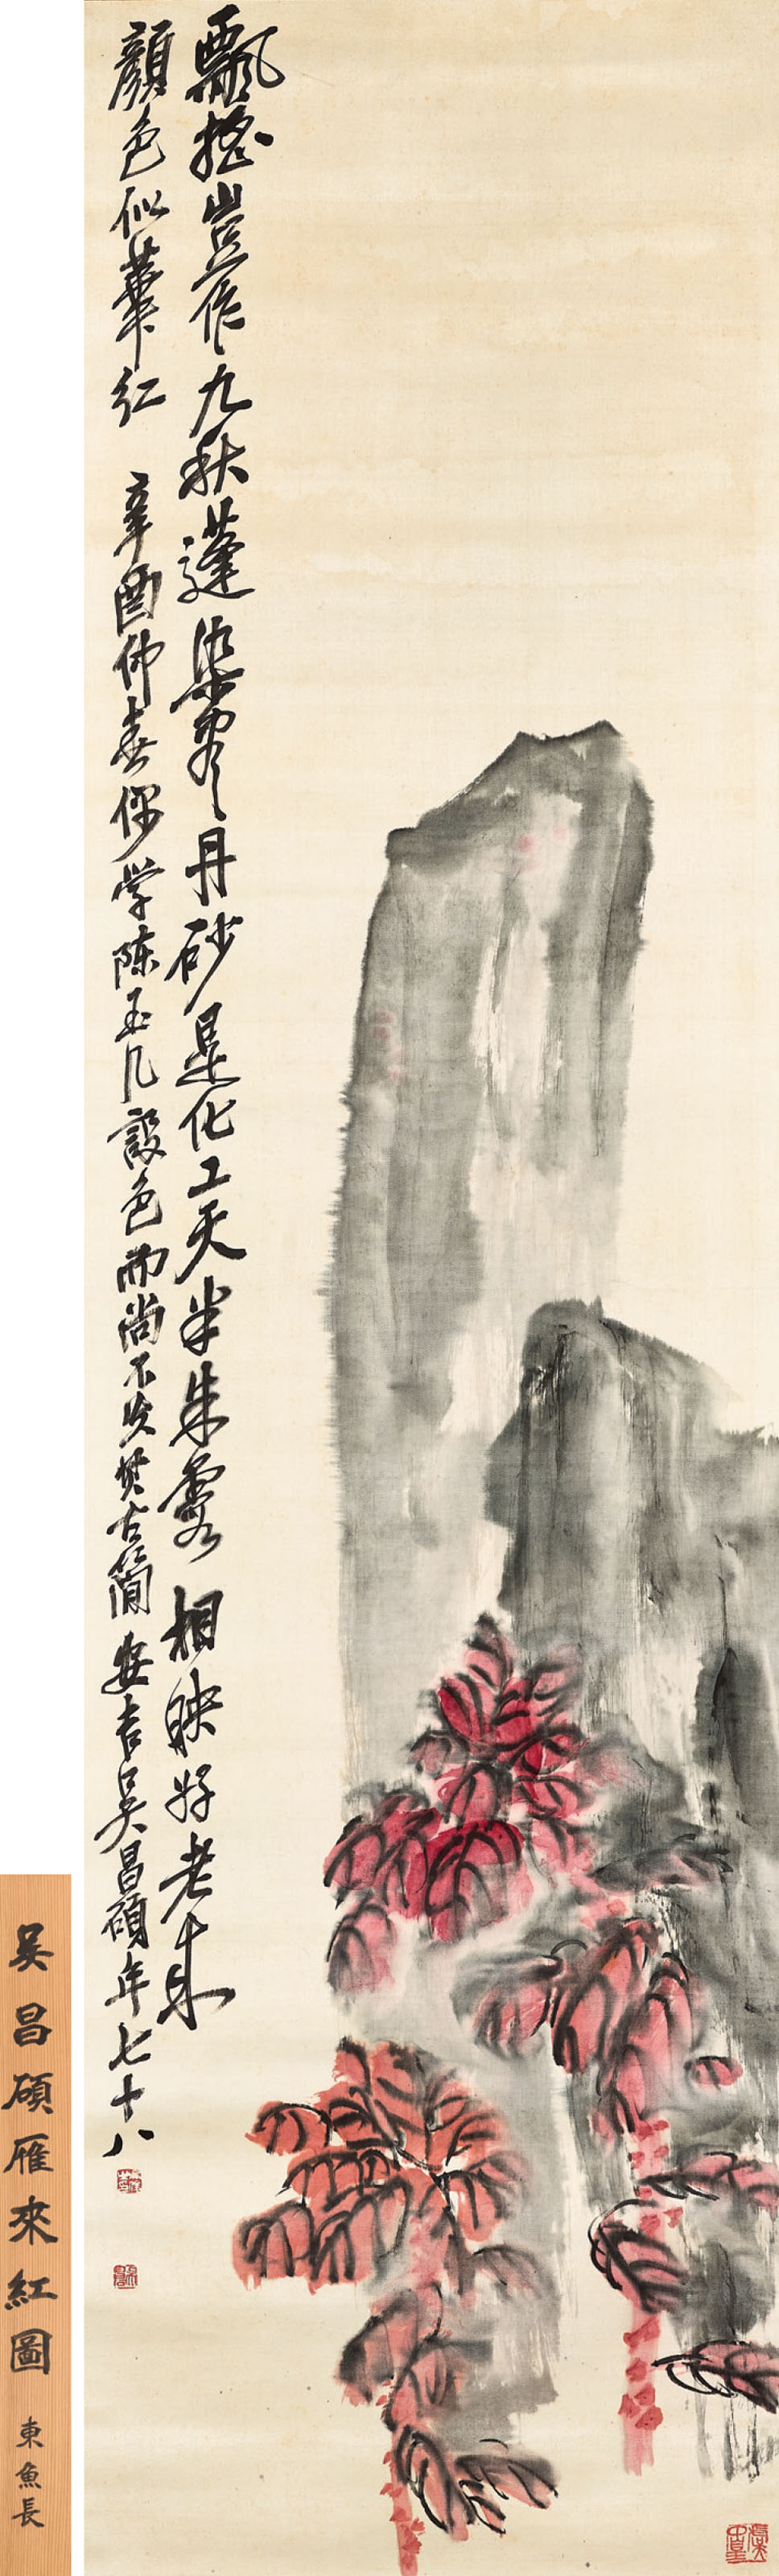 飄搖豈作九秋蓬染霧丹砂是化工天半朱霞相映好老來
顏色似華紅
辛酉佛喜偶學陳玉几設色而尚不失其古簡安吉吳昌碩年七十八
吳昌碩雁來紅圖
東魚長